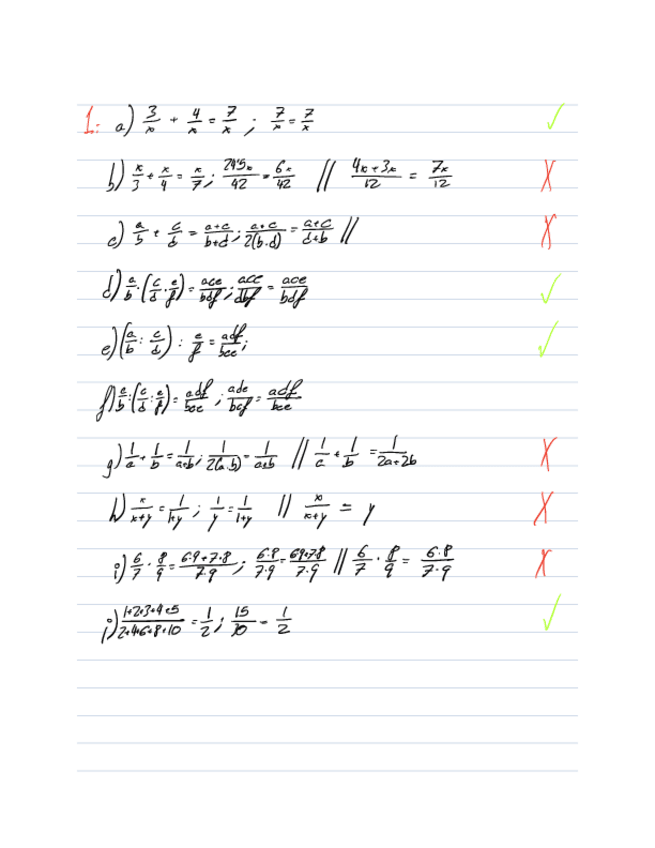 1. a) 3/x + 4/x = 7/x ; 7/x = 7/x ✓
b) x/3 + x/4 = x/7 ; /42 = 6x/42 // 4x+3x/12 = 7x/12 X
c) a/b + c/d = a+c/b+d ; a+c/2(b·d) = a+c/d+b // X
d) a/b · (c/d · e/f) = ace/bdf ; ace/dbf = ace/bdf ✓
e) (a/b : c/d) : e/f = adf/bce ; ✓
f) a/b : (c/d : e/f) = adf/bce ; ade/bcf = adf/bce
g) 1/a + 1/b = 1/a+b ; 1/2(a·b) = 1/a+b // 1/a + 1/b = 1/2a+2b X
h) x/x+y = 1/1+y ; 1/y = 1/1+y // x/x+y = y X
i) 6/7 · 8/9 = 6·9+7·8/7·9 ; 6·8/7·9 = 69+78/7·9 // 6/7 · 8/9 = 6·8/7·9 X
j) 1+2+3+4+5/2+4+6+8+10 = 1/2 ; 15/ = 1/2 ✓